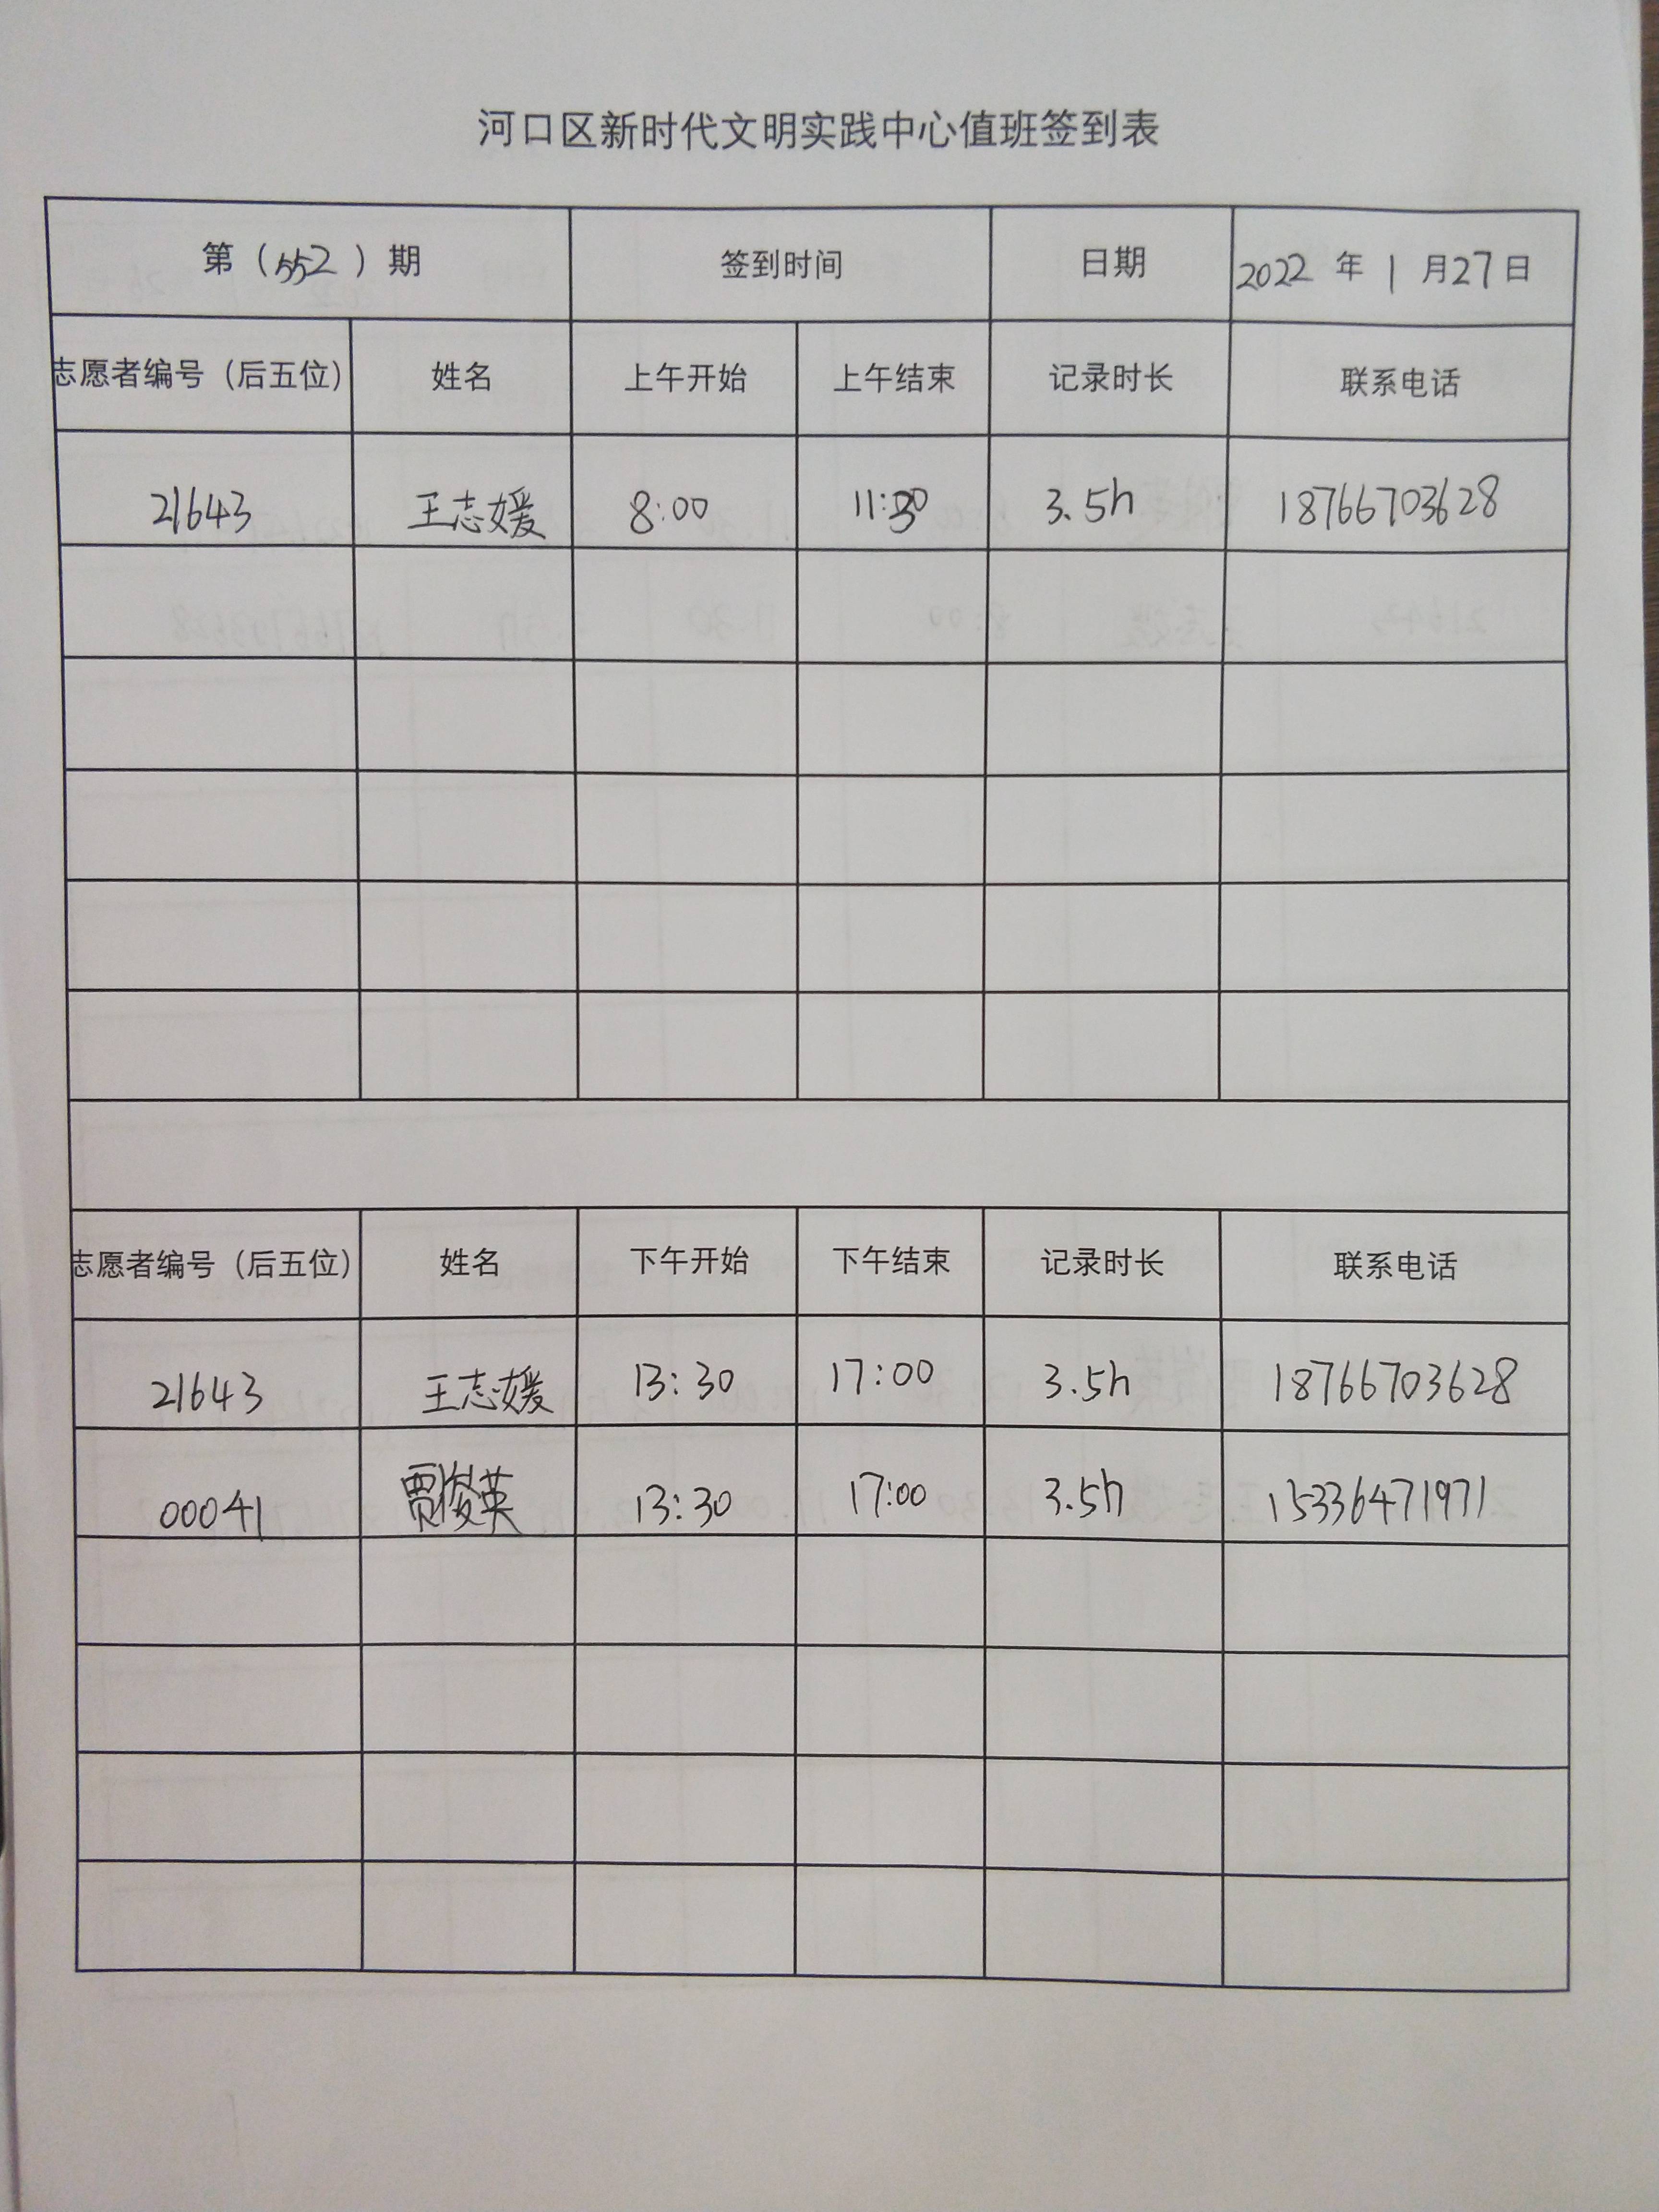 河口区新时代文明实践中心值班签到表
第（552）期 签到时间 日期 2022 年 1 月27日
志愿者编号（后五位） 姓名 上午开始 上午结束 记录时长 联系电话
21643 王志媛 8:00 11:30 3.5h 18766703628
志愿者编号（后五位） 姓名 下午开始 下午结束 记录时长 联系电话
21643 王志媛 13:30 17:00 3.5h 18766703628
00041 贾俊英 13:30 17:00 3.5h 15336471971